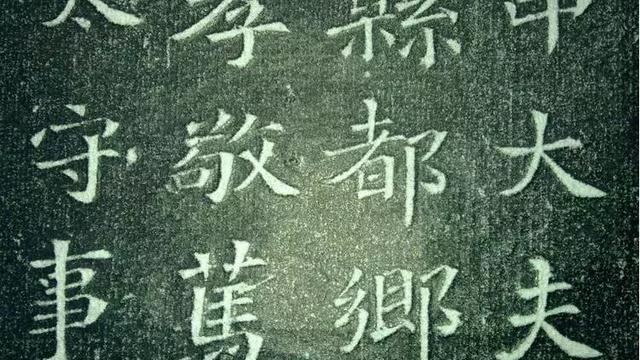 大夫
縣都鄉
孝敬篤
太守事